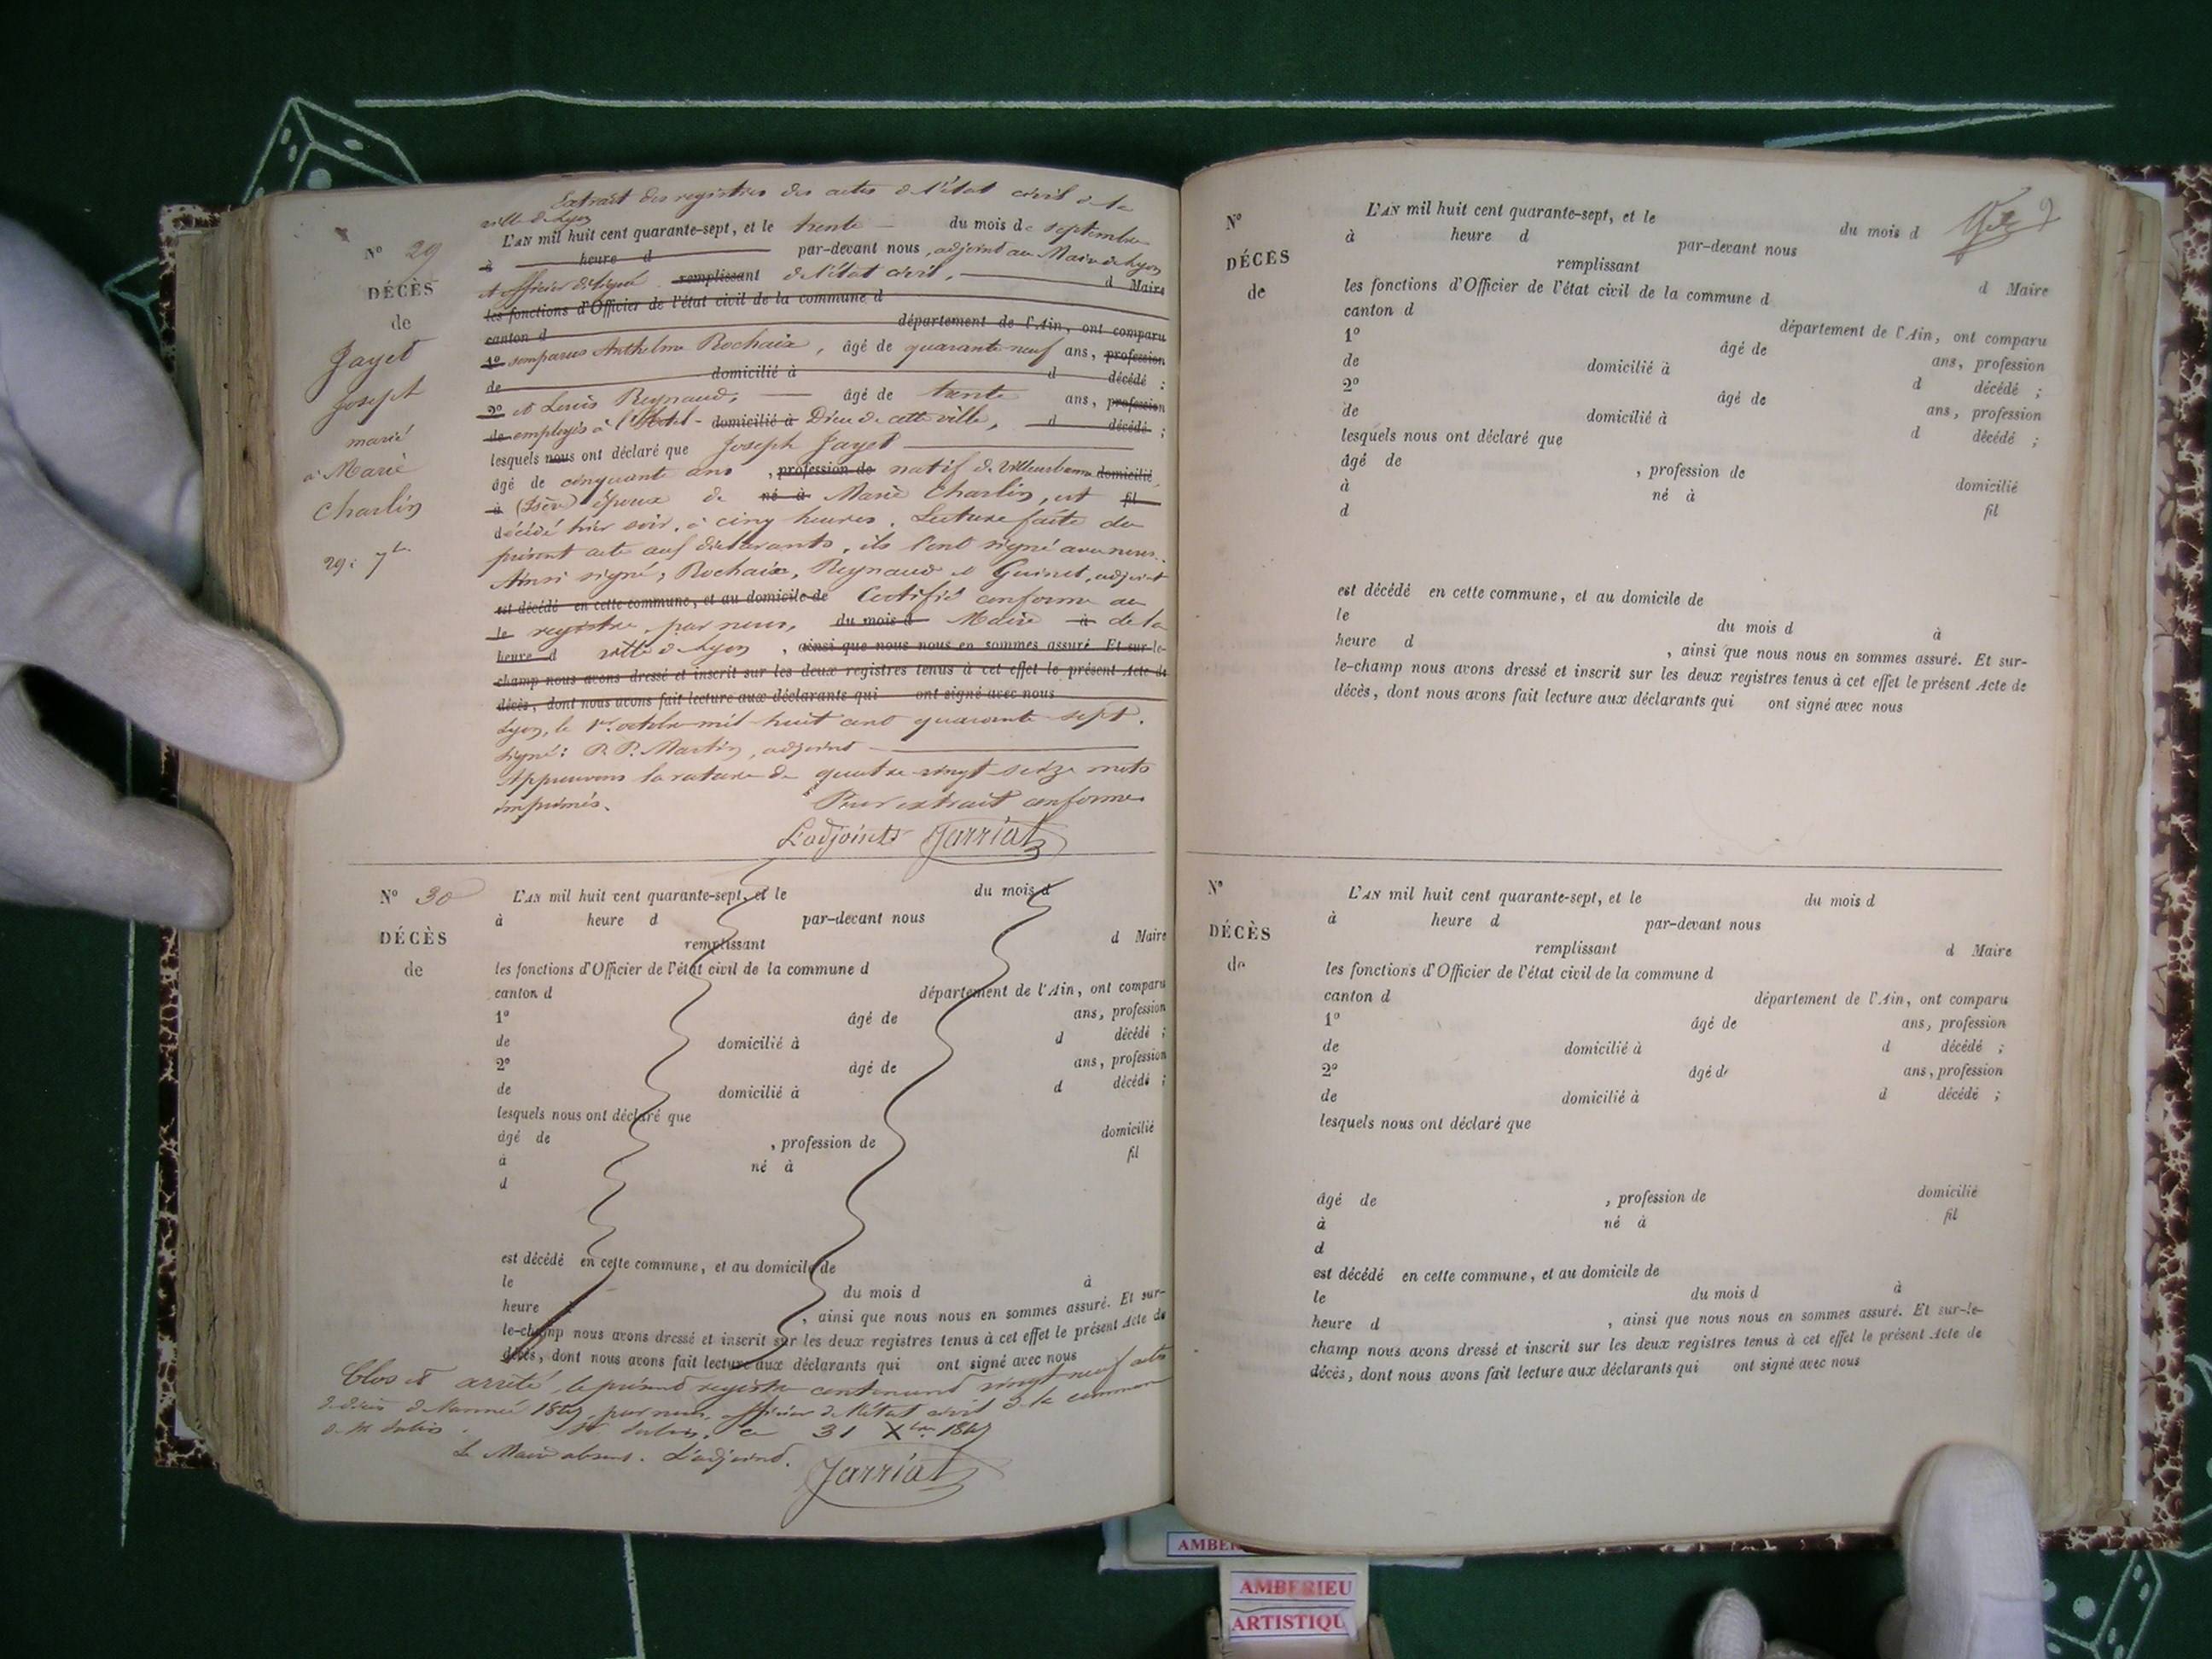 Extrait des registres des actes de l'état civil de la
ville de Lyon
N° 29
DÉCÈS
de
Jayet
Joseph
marié
à Marie
Charlin
29: 7bre
L'AN mil huit cent quarante-sept, et le trente du mois de septembre
à heure d par-devant nous, adjoint au Maire de Lyon
et officier délégué remplissant de l'état civil, d Maire
les fonctions d'Officier de l'état civil de la commune d
canton d département de l'Ain, ont comparu
1° comparus Anthelme Rochaix, âgé de quarante neuf ans, profession
de domicilié à d décédé ;
2° et Louis Reynaud, âgé de trente ans, profession
de employés à l'Hotel- domicilié à Dieu de cette ville, d décédé ;
lesquels nous ont déclaré que Joseph Jayet
âgé de cinquante ans , profession de natif de Villeurbanne domicilié
à (Isère) époux de né à Marie Charlin, est fil
décédé hier soir, à cinq heures. Lecture faite du
présent acte aux déclarants, ils l'ont signé avec nous.
Ainsi signé; Rochaix, Reynaud et Guinet, adjoint
est décédé en cette commune, et au domicile de Certifié conforme au
le registre, par nous, du mois d Maire à de la
heure d ville de Lyon , ainsi que nous nous en sommes assuré. Et sur-le-
champ nous avons dressé et inscrit sur les deux registres tenus à cet effet le présent Acte de
décès, dont nous avons fait lecture aux déclarants qui ont signé avec nous
Lyon, le 1er octobre mil huit cent quarante sept.
signé: P. P. Martin, adjoint
Approuvons la rature de quatre-vingt-seize mots
imprimés. Pour extrait conforme
L'adjoint Jarriat
N° 30
DÉCÈS
de
L'AN mil huit cent quarante-sept, et le du mois d
à heure d par-devant nous
remplissant d Maire
les fonctions d'Officier de l'état civil de la commune d
canton d département de l'Ain, ont comparu
1° âgé de ans, profession
de domicilié à d décédé ;
2° âgé de ans, profession
de domicilié à d décédé ;
lesquels nous ont déclaré que
âgé de , profession de domicilié
à né à fil
d
est décédé en cette commune, et au domicile de
le du mois d à
heure , ainsi que nous nous en sommes assuré. Et sur-
le-champ nous avons dressé et inscrit sur les deux registres tenus à cet effet le présent Acte de
décès, dont nous avons fait lecture aux déclarants qui ont signé avec nous
Clos et arrêté, le présent registre contenant vingt neuf actes
de décès de l'année 1847, par nous, officier de l'état civil de la commune
de St Julien. St Julien, ce 31 Xbre 1847
Le Maire absent. L'adjoint.
Jarriat
N°
DÉCÈS
de
L'AN mil huit cent quarante-sept, et le du mois d
à heure d par-devant nous
remplissant d Maire
les fonctions d'Officier de l'état civil de la commune d
canton d département de l'Ain, ont comparu
1° âgé de ans, profession
de domicilié à d décédé ;
2° âgé de ans, profession
de domicilié à d décédé ;
lesquels nous ont déclaré que
âgé de , profession de domicilié
à né à fil
d
est décédé en cette commune, et au domicile de
le du mois d à
heure d , ainsi que nous nous en sommes assuré. Et sur-
le-champ nous avons dressé et inscrit sur les deux registres tenus à cet effet le présent Acte de
décès, dont nous avons fait lecture aux déclarants qui ont signé avec nous
N°
DÉCÈS
de
L'AN mil huit cent quarante-sept, et le du mois d
à heure d par-devant nous
remplissant d Maire
les fonctions d'Officier de l'état civil de la commune d
canton d département de l'Ain, ont comparu
1° âgé de ans, profession
de domicilié à d décédé ;
2° âgé de ans, profession
de domicilié à d décédé ;
lesquels nous ont déclaré que
âgé de , profession de domicilié
à né à fil
d
est décédé en cette commune, et au domicile de
le du mois d à
heure d , ainsi que nous nous en sommes assuré. Et sur-le-
champ nous avons dressé et inscrit sur les deux registres tenus à cet effet le présent Acte de
décès, dont nous avons fait lecture aux déclarants qui ont signé avec nous
AMBERIEU
ARTISTIQU